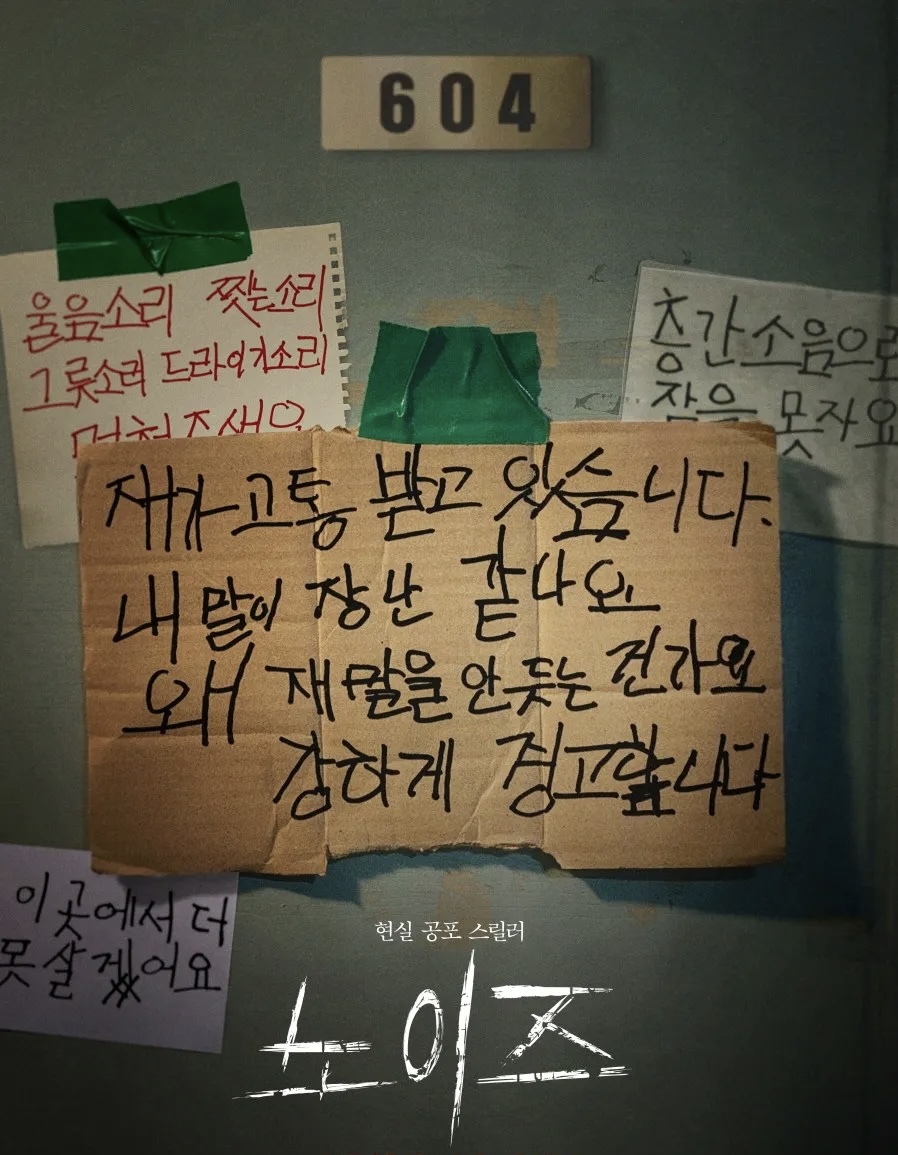 604
울음소리 찢는소리
그릇소리 드라이기소리
멈춰주세요
층간소음으로
잠을 못자요
재가 고통 받고 있습니다.
내 말이 장난 같나요
왜 재 말을 안 듣는 건가요
강하게 경고합니다
이곳에서 더
못살겠어요
현실 공포 스릴러
노이즈